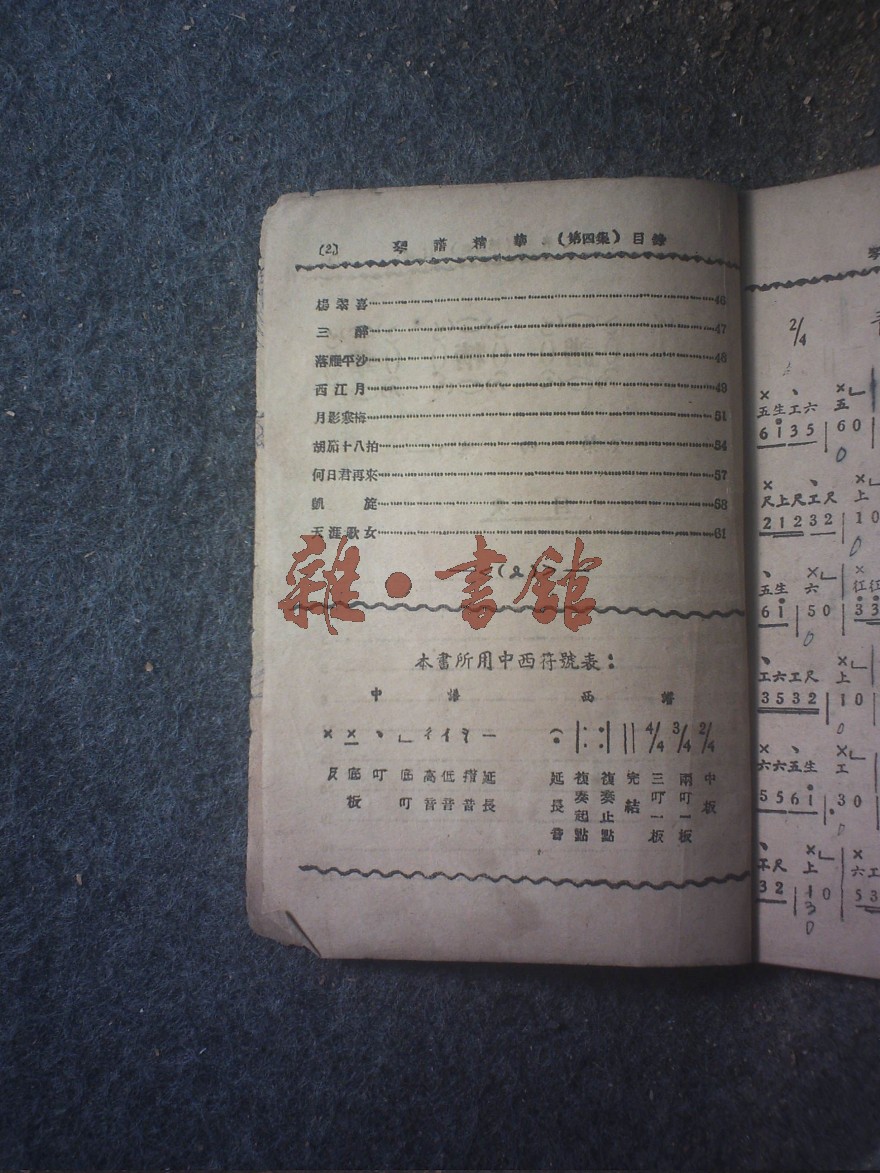 (2) 琴譜精華 (第四集) 目錄
楊翠喜 46
三醉 47
落雁平沙 48
西江月 49
月影寒梅 51
胡笳十八拍 54
何日君再來 57
凱旋 58
天涯歌女 61
(2)
雜·書館
本書所用中西符號表：
中譜 西譜
4/4 3/4 2/4
板 底板 叮 底叮 高音 低音 揹音 延長 延長音 復奏起點 復奏止點 完結 三叮一板 兩叮一板 中板
2/4
五生工六 五
6 i 3 5 6 0
尺上尺工尺 上
2 1 2 3 2 1 0
五生 六
6 i 5 0 3 3
工六工尺 上
3 5 3 2 1 0
六六五生 工
5 5 6 i 3 0
工尺 上 六工
3 2 1 0 5 3
3